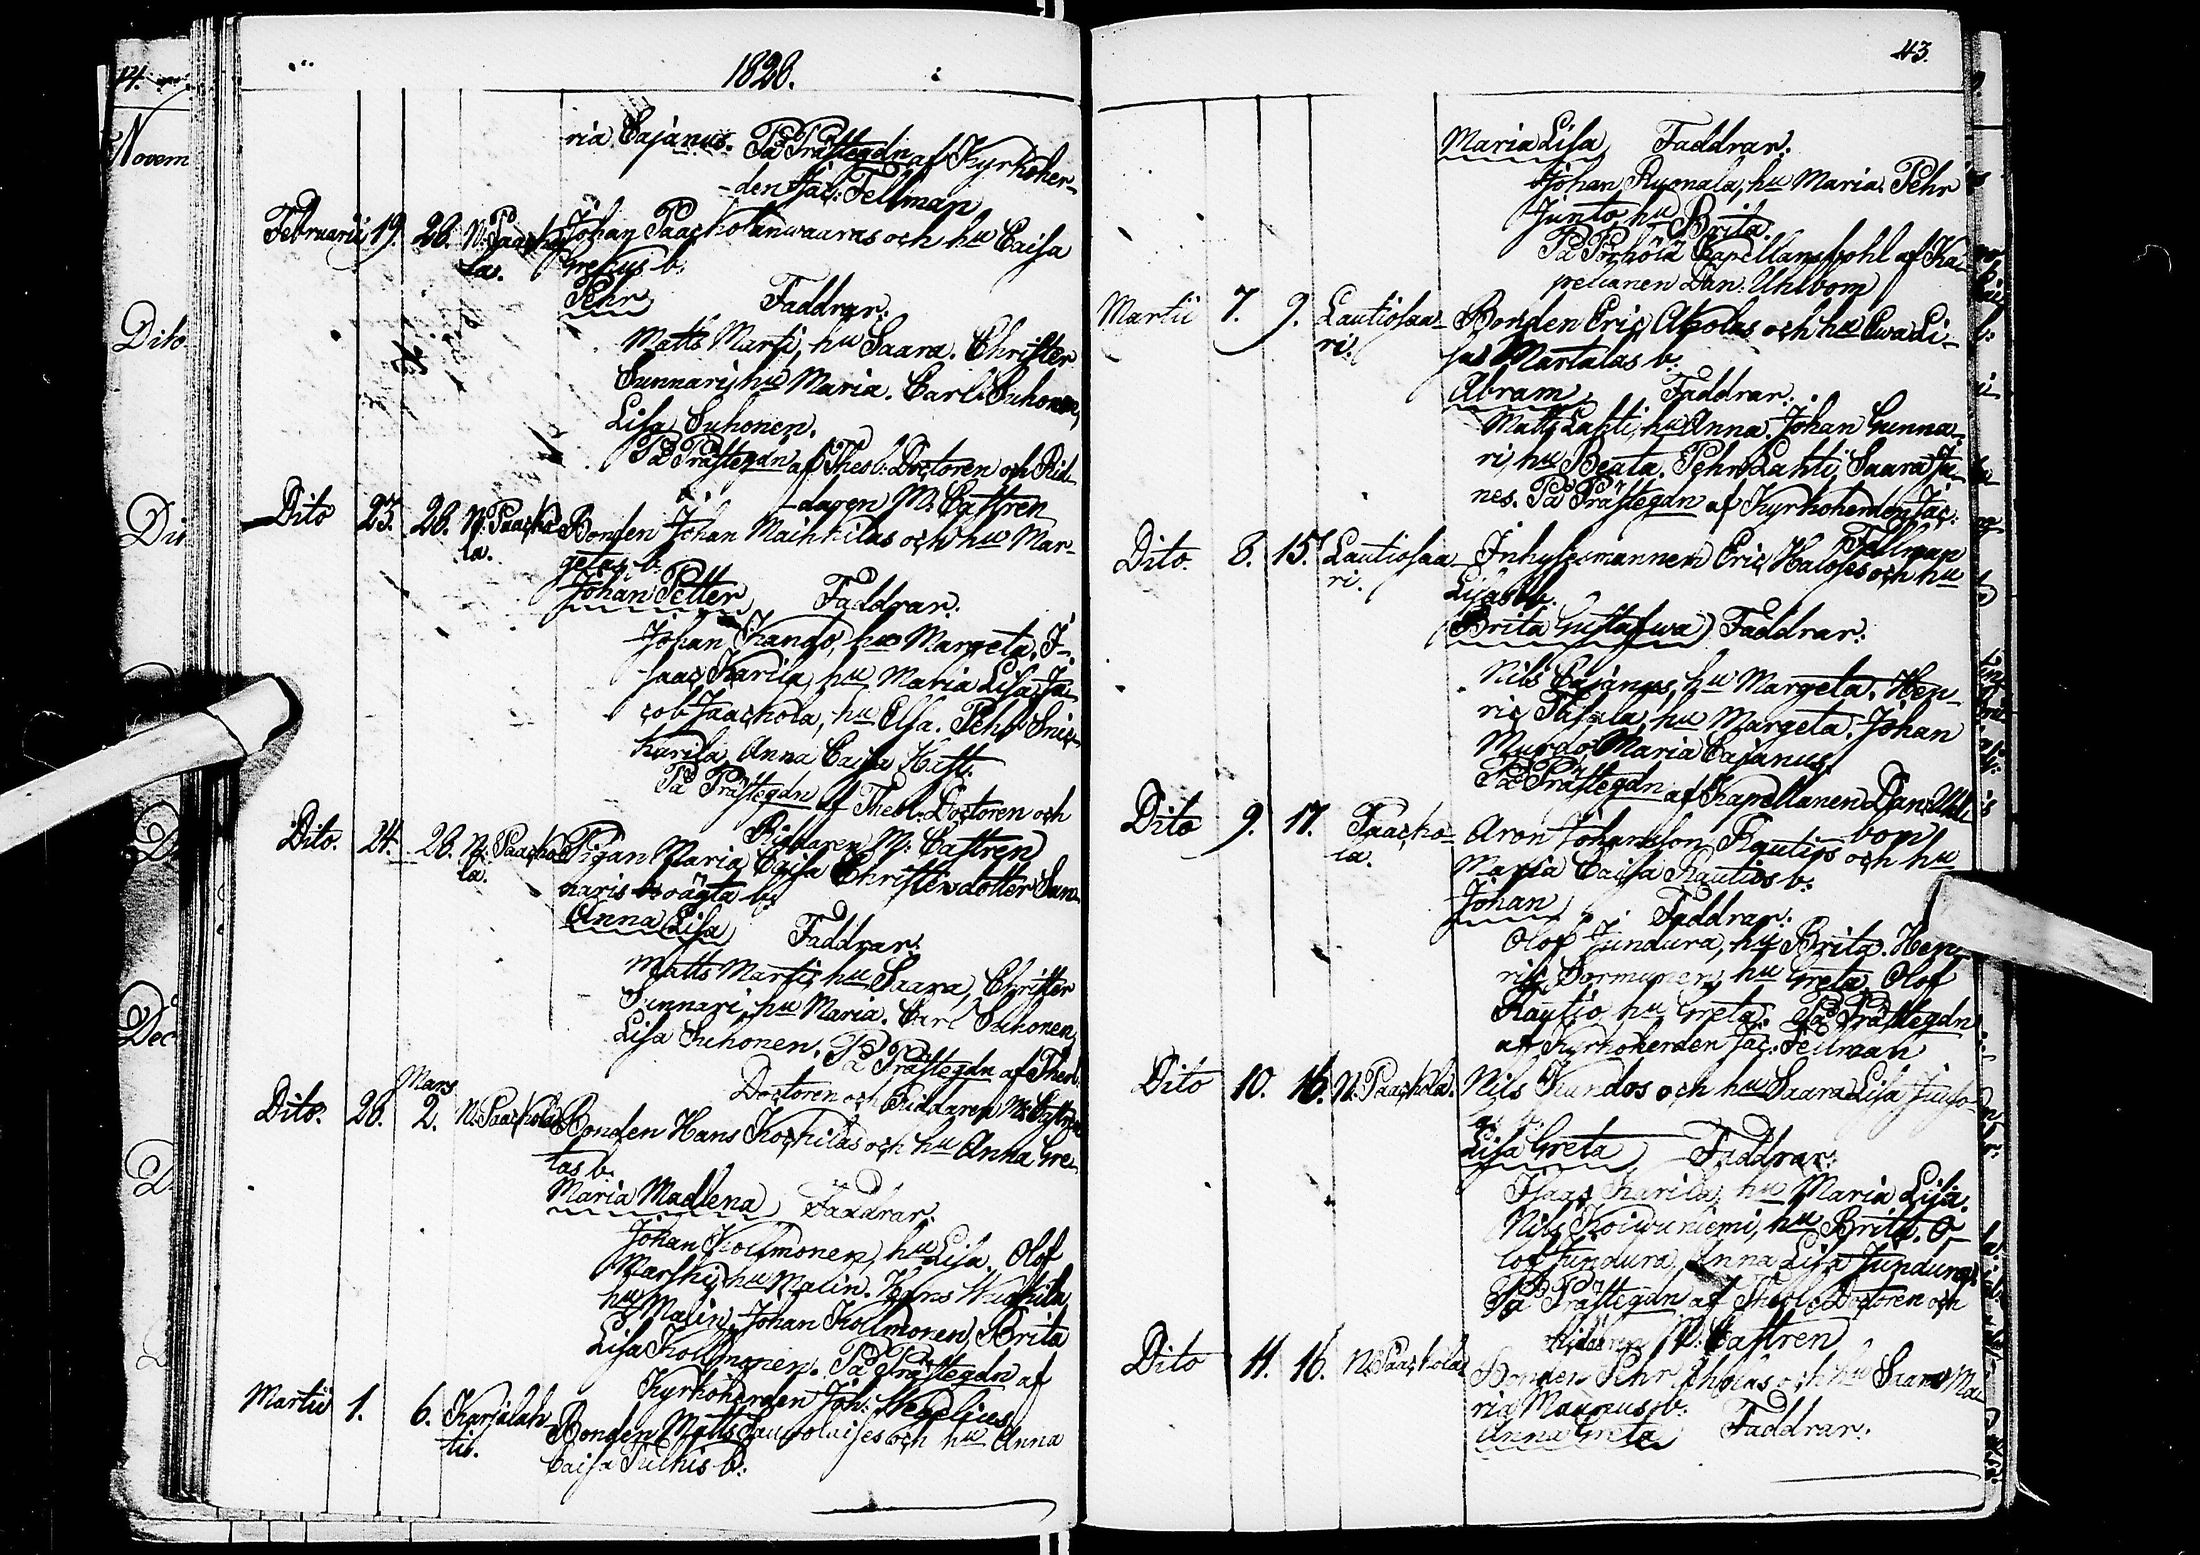 1828.
ria Cajanus. På Prästegdn af Kyrkoher-
den Jac: Fellman
Februarii 19. 28. N. Paacko Johan Paackolanwaaras och hu Caisa
la. Grekus b:
Pehr Faddrar:
Matts Marti, hu Saara. Christer
Sunnari, hu Maria. Carl Suhonen,
Lisa Suhonen.
På Prästegdn af Theol: Doctoren och Rid-
daren M. Castren
Dito 23. 28. N. Paacko Bonden Johan Maihkilas och hu Mar-
la. getas b:
Johan Petter Faddrar.
Johan Kando, hu Margeta. I-
saac Karila, hu Maria Lisa. Ja-
cob Jaackola, hu Elsa. Pehr
karila, Anna Caisa
På Prästegdn af Theol. Doctoren och
Riddaren M: Castren
Dito. 24. 28. N. Paacko Pigan Maria Caisa Christersdotter Sun-
la. naris oägta b:
Anna Lisa Faddrar:
Matts Marti, hu Saara, Christer
Sunnari, hu Maria. Carl Suhonen,
Lisa Suhonen. På Prästegdn af Theol:
Doctoren och Riddaren M: Castren
Mars
Dito. 28. 2. N. Paackola Bonden Hans Kockilas och hu Anna Gre-
tas b.
Maria Madlena Faddrar:
Johan Kollmonen, hu Lisa. Olof
Marski, hu Malin. Hans
hu Malin, Johan Kollmonen, Brita
Lisa Kollmonen. På Prästegdn af
Kyrkoherden Joh: Heselius
Martii 1. 6. Karjalah Bonden Matts och hu Anna
ti. Caisa b:
43.
Maria Lisa Faddrar:
Johan Ruonala, hu Maria. Pehr
Junto, hu Brita.
På Pörhölä Kapellansbohl af Ka-
pellanen Dan: Uhlbom
Martii 7. 9. Lautiosaa- Bonden Eric Alaolas och hu Ewa Li-
ri. sas Martalas b:
Abram Faddrar:
Matts Lahti, hu Anna. Johan Gunna-
ri, hu Beata. Pehr Lahti, Saara Ja-
nes. På Prästegdn af Kyrkoherden Jac:
Fellman
Dito. 8. 15. Lautiosaa- Inhysesmannen Eric och hu
ri. Lisas b:
Brita Gustafwa Faddrar:
Nils Cajanus, hu Margeta. Hen-
ric hu Margeta. Johan
Murdo, Maria Cajanus.
På Prästegdn af Kapellanen Dan: Uhl-
bom
Dito 9. 17. Paacko- Aron Johansson Rautios och hu
la. Maria Caisa Rautios b:
Johan Faddrar:
Olof Jundura, hu Brita. Hen-
ric Sormunen, hu Greta. Olof
Rautio, hu Greta. På Prästegdn
af Kyrkoherden Jac: Fellman
Dito 10. 16. N. Paackola. Nils Kundos och hu Saara Lisa
Lisa Greta Faddrar:
Isaac Karila, hu Maria Lisa.
Nils Koiwuniemi, hu Brita. O-
lof Jundura, Anna Lisa Jundura.
På Prästegdn af Theol: Doctoren och
Riddaren M: Castren
Dito 11. 16. N. Paackola Bonden Pehr och hu Ma-
ria Magnus b:
Anna Greta Faddrar: